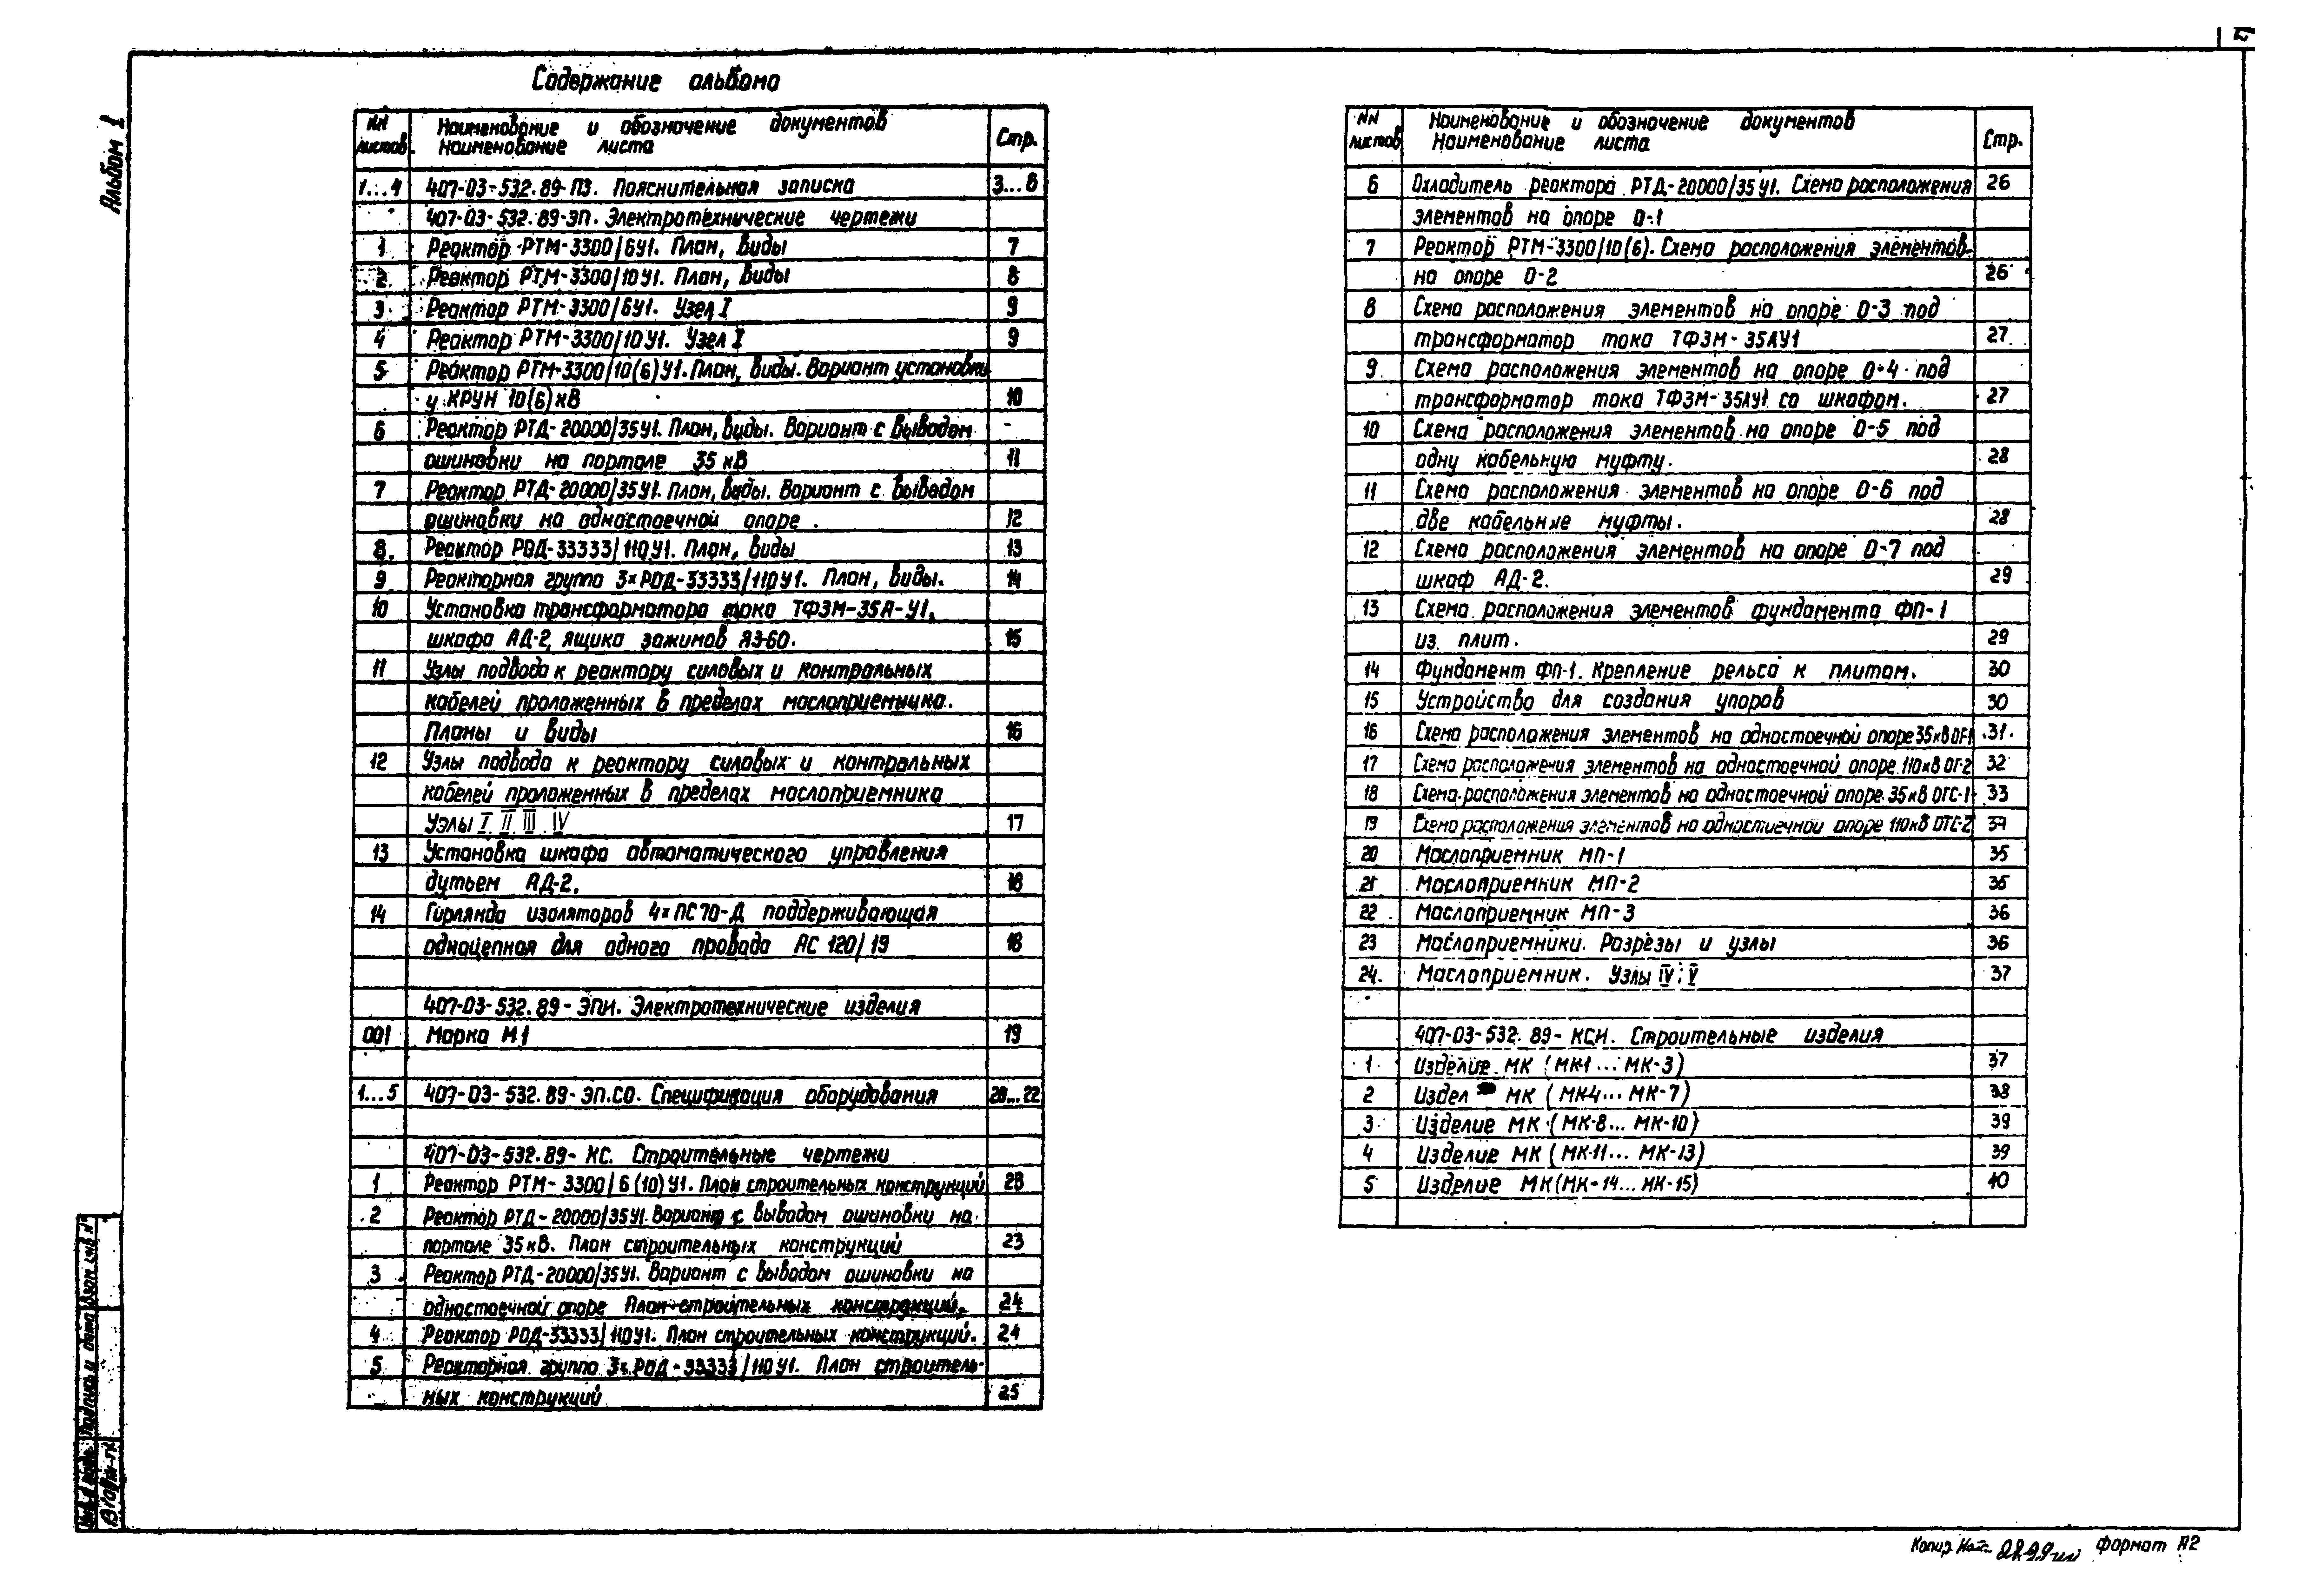 Альбом 1
Содержание альбома
NN листов
Наименование и обозначение документов
Наименование листа
Стр.
1...4 407-03-532.89-ПЗ. Пояснительная записка 3...6
407-03-532.89-ЭП. Электротехнические чертежи
1 Реактор РТМ-3300/6У1. План, виды 7
2 Реактор РТМ-3300/10У1. План, виды 8
3 Реактор РТМ-3300/6У1. Узел I 9
4 Реактор РТМ-3300/10У1. Узел I 9
5 Реактор РТМ-3300/10(6)У1. План, виды. Вариант установки
у КРУН 10(6)кВ 10
6 Реактор РТД-20000/35У1. План, виды. Вариант с выводом
ошиновки на портале 35 кВ 11
7 Реактор РТД-20000/35У1. План, виды. Вариант с выводом
ошиновки на одностоечной опоре. 12
8. Реактор РОД-33333/110У1. План, виды 13
9 Реакторная группа 3×РОД-33333/110У1. План, виды. 14
10 Установка трансформатора тока ТФЗМ-35А-У1,
шкафа АД-2, ящика зажимов ЯЗ-60. 15
11 Узлы подвода к реактору силовых и контрольных
кабелей проложенных в пределах маслоприемника.
Планы и виды 16
12 Узлы подвода к реактору силовых и контрольных
кабелей проложенных в пределах маслоприемника
Узлы I II III IV 17
13 Установка шкафа автоматического управления
дутьем АД-2. 18
14 Гирлянда изоляторов 4×ПС70-Д поддерживающая
одноцепная для одного провода АС 120/19 18
407-03-532.89-ЭПИ. Электротехнические изделия
001 Марка М1 19
1...5 407-03-532.89-ЭП.СО. Спецификация оборудования 20...22
407-03-532.89-КС. Строительные чертежи
1 Реактор РТМ-3300/6(10)У1. План строительных конструкций 23
2 Реактор РТД-20000/35У1. Вариант с выводом ошиновки на
портале 35кВ. План строительных конструкций 23
3 Реактор РТД-20000/35У1. Вариант с выводом ошиновки на
одностоечной опоре План строительных конструкций. 24
4 Реактор РОД-33333/110У1. План строительных конструкций. 24
5 Реакторная группа 3×РОД-33333/110У1. План строитель-
ных конструкций 25
NN листов
Наименование и обозначение документов
Наименование листа
Стр.
6 Охладитель реактора РТД-20000/35У1. Схема расположения 26
элементов на опоре О-1
7 Реактор РТМ-3300/10(6). Схема расположения элементов
на опоре О-2 26
8 Схема расположения элементов на опоре О-3 под
трансформатор тока ТФЗМ-35АУ1 27
9 Схема расположения элементов на опоре О-4 под
трансформатор тока ТФЗМ-35АУ1 со шкафом. 27
10 Схема расположения элементов на опоре О-5 под
одну кабельную муфту. 28
11 Схема расположения элементов на опоре О-6 под
две кабельные муфты. 28
12 Схема расположения элементов на опоре О-7 под
шкаф АД-2. 29
13 Схема расположения элементов фундамента ФП-1
из плит. 29
14 Фундамент ФП-1. Крепление рельса к плитам. 30
15 Устройство для создания упоров 30
16 Схема расположения элементов на одностоечной опоре 35кВ 31
17 Схема расположения элементов на одностоечной опоре 110кВ ОГ-2 32
18 Схема расположения элементов на одностоечной опоре 35кВ ОГС-1 33
19 Схема расположения элементов на одностоечной опоре 110кВ 34
20 Маслоприемник МП-1 35
21 Маслоприемник МП-2 35
22 Маслоприемник МП-3 36
23 Маслоприемники. Разрезы и узлы 36
24. Маслоприемник. Узлы IV; V 37
407-03-532.89-КСИ. Строительные изделия
1 Изделие МК (МК-1...МК-3) 37
2 Издел МК (МК-4...МК-7) 38
3 Изделие МК (МК-8...МК-10) 39
4 Изделие МК (МК-11...МК-13) 39
5 Изделие МК (МК-14...МК-15) 40
Подпись и дата
Взам инв N°
Формат А2